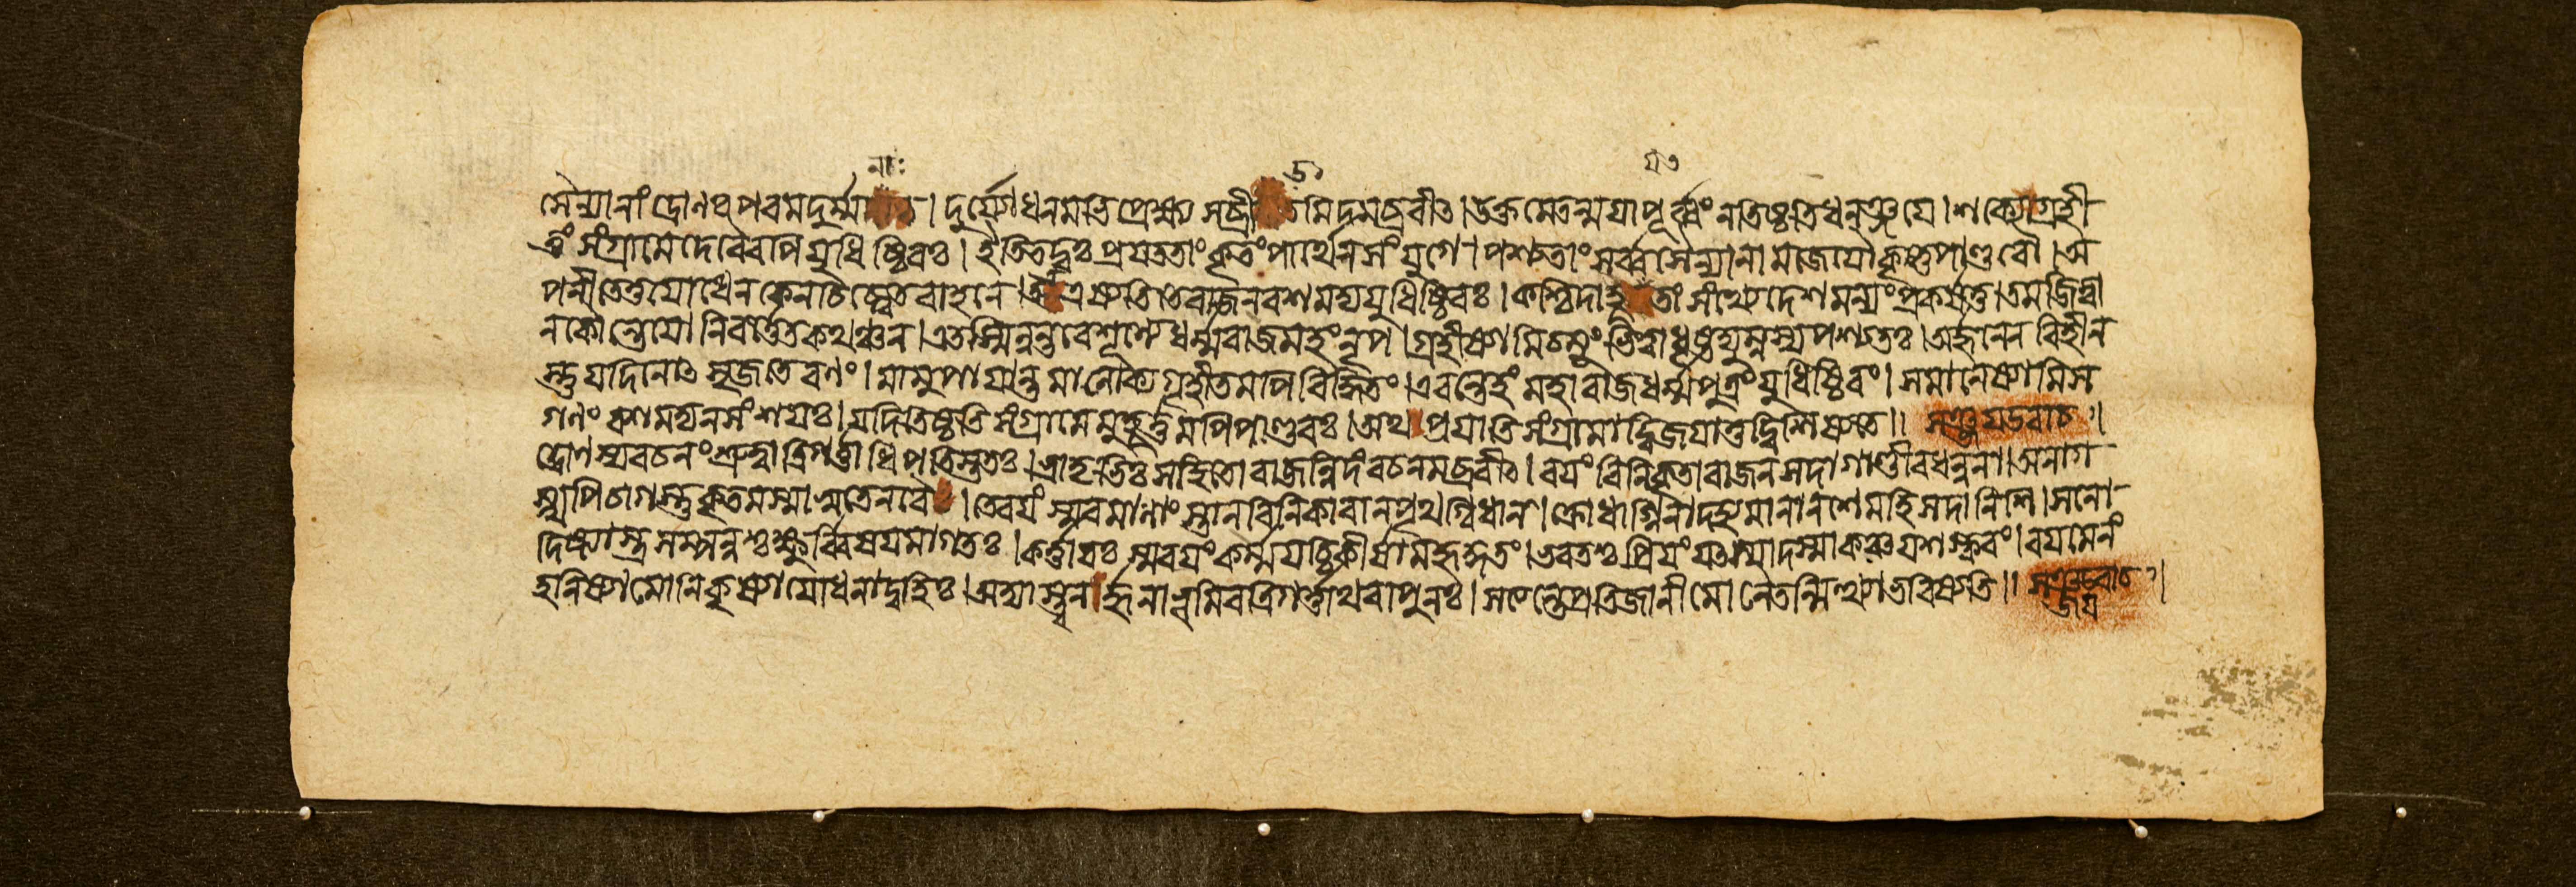 না: ৎ যত
সৈন্যানাং দ্রোণঃ পরমদুর্ম্ম। দুর্য্যোধনমভিপ্রেক্ষ্য সব্রী মিদমব্রবীৎ। উক্তমেতন্ময়াপূর্ব্বং নতিষ্ঠতিধনঞ্জয়ে। শক্যোগ্রহী
তুং সংগ্রামে দেবৈরপি যুধিষ্ঠিরঃ। ইতিতদ্বঃ প্রযততাং কৃতং পার্থেনসংযুগে। পশ্যতাং সর্ব্বসৈন্যানামজেয়ৌকৃষ্ণপাণ্ডবৌ। অ
পনীতেতুযোগেন কেনচিচ্ছ্বেতবাহনে। এষ্যতিতেরাজন্বশমদ্যযুধিষ্ঠিরঃ। কশ্চিদাহূ তং সংখ্যেদেশমন্যং প্রকর্ষতু। তমজিত্বা
নকৌন্তেয়ো নিবর্ত্তেতকথঞ্চন। এতস্মিন্নন্তরেশূন্যে ধর্ম্মরাজমহংনৃপ। গ্রহীষ্যামিচমূং ভিত্ত্বাধৃষ্টদ্যুম্নস্যপশ্যতঃ। অর্জ্জুনেন বিহীন
স্তু যদিনোৎসৃজতেরণং। মামুপায়ান্তমালোক্য গৃহীত বিদ্ধিতং। এবন্তেহং মহারাজধর্ম্মপুত্রং যুধিষ্ঠিরং। সমানেষ্যামিস
গণং বশমদ্যনসংশয়ঃ। যদিতিষ্ঠতি সংগ্রামেমুহূর্ত্তমপিপাণ্ডবঃ। অথ প্রয়াতিসংগ্রামাদ্বিজয়াত্তদ্বিশিষ্যতে॥ সঞ্জয়উবাচ।
দ্রোণস্যবচনং শ্রুত্বাত্রিগর্ত্তাধিপতিস্ততঃ। ভ্রাতৃভিঃ সহিতোরাজন্নিদংবচনমব্রবীৎ। বয়ং বিনিকৃতারাজন্সদাগাণ্ডীবধন্বনা। অনাগঃ
স্বপিচাগস্তৎকৃতমস্মা । তেবয়ং স্মরমাণাঃ স্তান্বিনিকারান্পৃথগ্বিধান্। ক্রোধাগ্নিনাদহ্যমানানশেমহিসদানিশি। সনো
দিব্যাস্ত্রসম্পন্নশ্চক্ষুর্ব্বিষয়মাগতঃ। কর্ত্তারঃ স্মবয়ং কর্ম্মযচ্চিকীর্ষামহৃদ্গতং। ভবতশ্চপ্রিয়ং যৎস্যাদস্মাকঞ্চযশস্করং। বয়মেনং
হনিষ্যামোনিকৃষ্যাযোধনাদ্বহিঃ। অদ্যাস্ত্বনর্জ্জুনাভূমিরত্রিগর্ত্তাথবাপুনঃ। সত্যন্তেপ্রতিজানীমোনৈতন্মিথ্যাভবিষ্যতি॥ সঞ্জয়উবাচ।